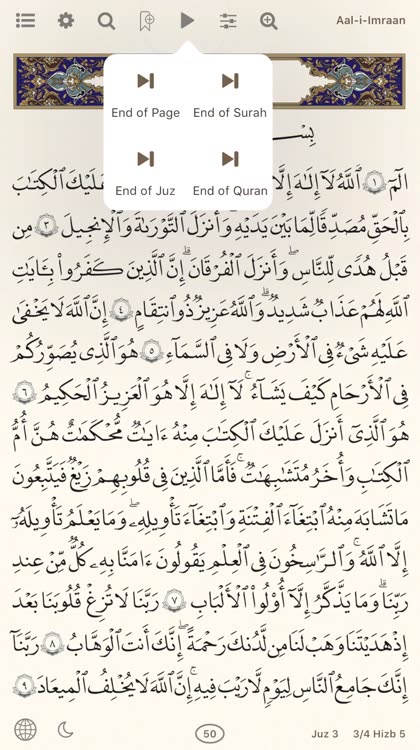 Aal-i-Imraan
End of Page End of Surah
End of Juz End of Quran
بِسْـ
الٓمٓ ١ ٱللَّهُ لَآ إِلَٰهَ إِلَّا عَلَيْكَ ٱلْكِتَٰبَ
بِٱلْحَقِّ مُصَدِّقًا لِّمَا بَيْنَ يَدَيْهِ وَأَنزَلَ ٱلتَّوْرَىٰةَ وَٱلْإِنجِيلَ ٣ مِن
قَبْلُ هُدًى لِّلنَّاسِ وَأَنزَلَ ٱلْفُرْقَانَ ۗ إِنَّ ٱلَّذِينَ كَفَرُوا۟ بِـَٔايَٰتِ
ٱللَّهِ لَهُمْ عَذَابٌ شَدِيدٌ ۗ وَٱللَّهُ عَزِيزٌ ذُو ٱنتِقَامٍ ٤ إِنَّ ٱللَّهَ لَا يَخْفَىٰ
عَلَيْهِ شَىْءٌ فِى ٱلْأَرْضِ وَلَا فِى ٱلسَّمَآءِ ٥ هُوَ ٱلَّذِى يُصَوِّرُكُمْ
فِى ٱلْأَرْحَامِ كَيْفَ يَشَآءُ ۚ لَآ إِلَٰهَ إِلَّا هُوَ ٱلْعَزِيزُ ٱلْحَكِيمُ ٦
هُوَ ٱلَّذِىٓ أَنزَلَ عَلَيْكَ ٱلْكِتَٰبَ مِنْهُ ءَايَٰتٌ مُّحْكَمَٰتٌ هُنَّ أُمُّ
ٱلْكِتَٰبِ وَأُخَرُ مُتَشَٰبِهَٰتٌ ۖ فَأَمَّا ٱلَّذِينَ فِى قُلُوبِهِمْ زَيْغٌ فَيَتَّبِعُونَ
مَا تَشَٰبَهَ مِنْهُ ٱبْتِغَآءَ ٱلْفِتْنَةِ وَٱبْتِغَآءَ تَأْوِيلِهِۦ ۗ وَمَا يَعْلَمُ تَأْوِيلَهُۥٓ
إِلَّا ٱللَّهُ ۗ وَٱلرَّٰسِخُونَ فِى ٱلْعِلْمِ يَقُولُونَ ءَامَنَّا بِهِۦ كُلٌّ مِّنْ عِندِ
رَبِّنَا ۗ وَمَا يَذَّكَّرُ إِلَّآ أُو۟لُوا۟ ٱلْأَلْبَٰبِ ٧ رَبَّنَا لَا تُزِغْ قُلُوبَنَا بَعْدَ
إِذْ هَدَيْتَنَا وَهَبْ لَنَا مِن لَّدُنكَ رَحْمَةً ۚ إِنَّكَ أَنتَ ٱلْوَهَّابُ ٨ رَبَّنَآ
إِنَّكَ جَامِعُ ٱلنَّاسِ لِيَوْمٍ لَّا رَيْبَ فِيهِ ۚ إِنَّ ٱللَّهَ لَا يُخْلِفُ ٱلْمِيعَادَ ٩
50 Juz 3 3/4 Hizb 5